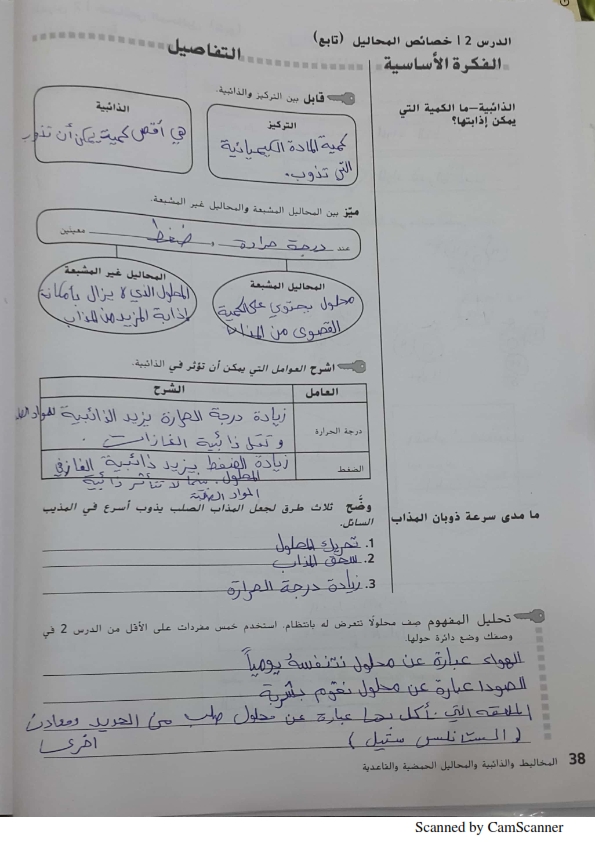 الدرس 2 | خصائص المحاليل (تابع)
الفكرة الأساسية
التفاصيل
الذائبية—ما الكمية التي
يمكن إذابتها؟
قابل بين التركيز والذائبية.
التركيز
كمية المادة الكيميائية
التي تذوب.
الذائبية
هي أقصى كمية يمكن أن تذوب
ميّز بين المحاليل المشبعة والمحاليل غير المشبعة.
عند درجة حرارة و ضغط معينين
المحاليل المشبعة
محلول يحتوي على الكمية
القصوى من المذاب
المحاليل غير المشبعة
المحلول الذي لا يزال بأمكانه
إذابة المزيد من المذاب
اشرح العوامل التي يمكن أن تؤثر في الذائبية.
العامل
الشرح
درجة الحرارة
زيادة درجة الحرارة يزيد الذائبية للمواد
و تقل ذائبية الغازات.
الضغط
زيادة الضغط يزيد ذائبية الغاز في
المحلول. بينما لا تتأثر ذائبية
المواد الصلبة
ما مدى سرعة ذوبان المذاب
وضّح ثلاث طرق لجعل المذاب الصلب يذوب أسرع في المذيب
السائل.
1. تحريك المحلول
2. سحق المذاب
3. زيادة درجة الحرارة
تحليل المفهوم صِف محلولًا تتعرض له بانتظام. استخدم خمس مفردات على الأقل من الدرس 2 في
وصفك وضع دائرة حولها.
الهواء عبارة عن محلول نتنفسه يومياً
الصودا عبارة عن محلول نقوم بشربة
الملعقه التي نأكل بها عبارة عن محلول صلب من الحديد ومعادن
اخرى (الستانلس ستيل)
38 المخاليط والذائبية والمحاليل الحمضية والقاعدية
Scanned by CamScanner